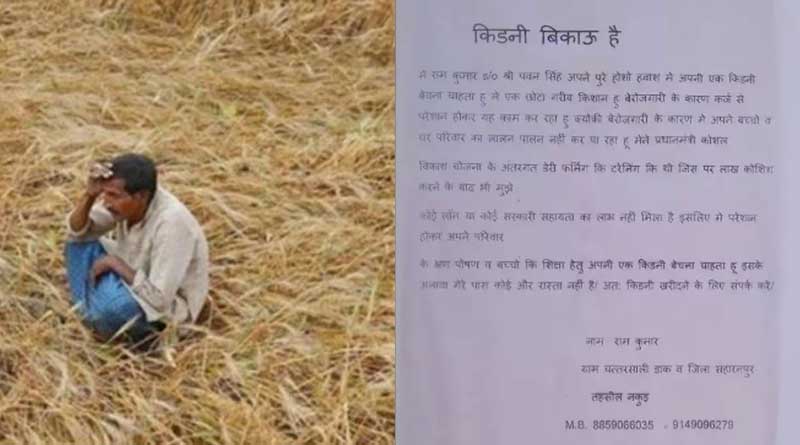 किडनी बिकाऊ है
मै राम कुमार s/o श्री पवन सिंह अपने पुरे होशो हवाश मे अपनी एक किडनी
बेचना चाहता हु मे एक छोटा गरीब किशान हु बेरोजगारी के कारण कर्ज से
परेशान होकर यह काम कर रहा हु क्योकी बेरोजगारी के कारण मे अपने बच्चो व
घर परिवार का लालन पालन नहीं कर पा रहा हू मेने प्रधानमंत्री कोशल
विकाश योजना के अंतरगत डेरी फर्मिंग कि टरेनिंग कि थी जिस पर लाख कोशिश
करने के बाद भी मुझे
कोई लॉन या कोई सरकारी सहायता का लाभ नहीं मिला है इसलिए मे परेशान
होकर अपने परिवार
के भ्रण पोषण व बच्चो कि शिक्षा हेतु अपनी एक किडनी बेचना चाहता हू इसके
अलावा मेरे पास कोई और रास्ता नहीं है/ अतः किडनी खरीदने के लिए संपर्क करे/
नाम राम कुमार
ग्राम चत्तरसाली डाक व जिला सहारनपुर
तहसील नकुड़
M.B. 8859066035 , 9149096279